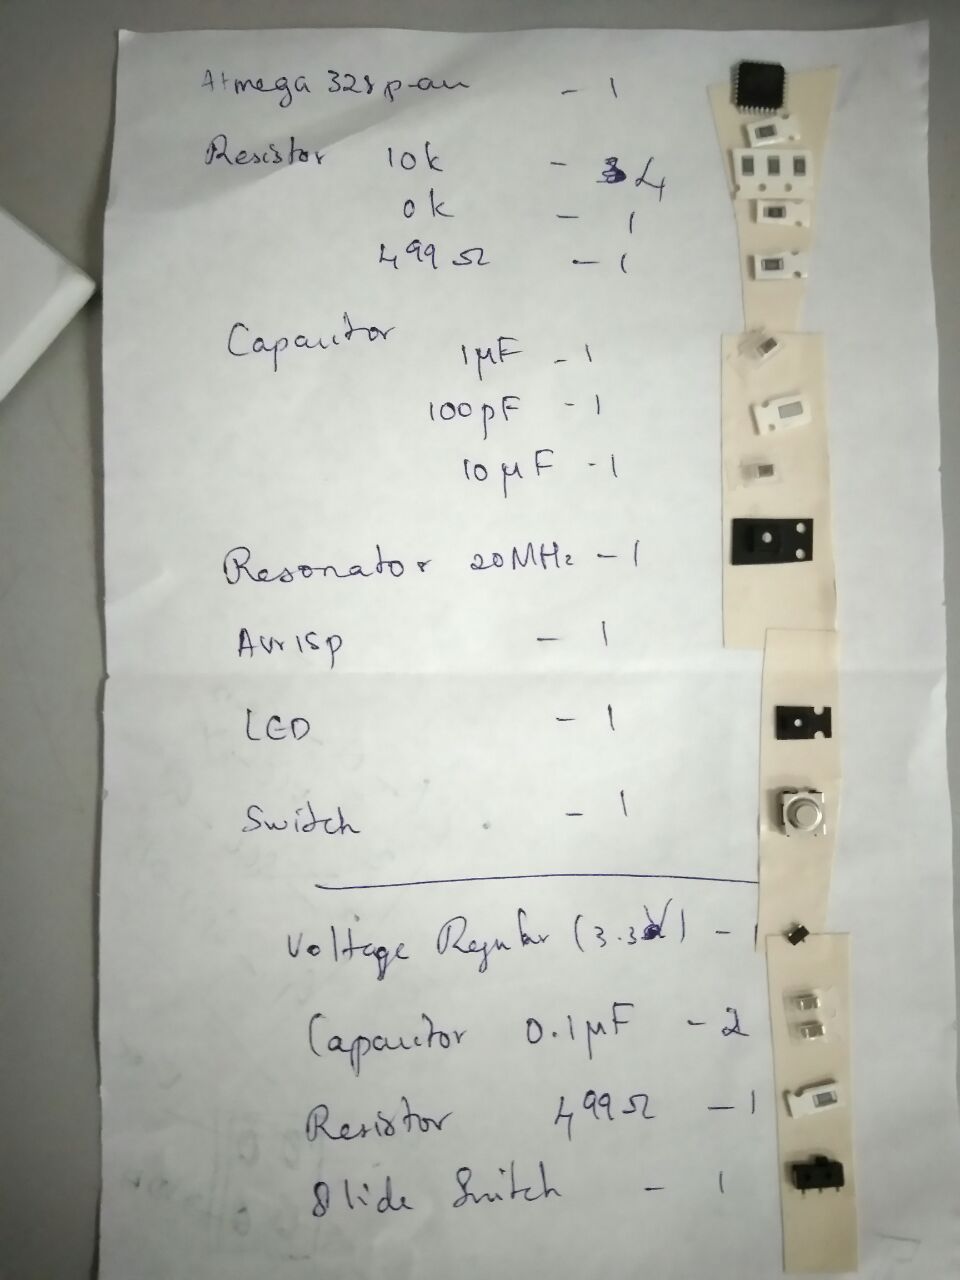 Atmega 328p-au - 1
Resistor 10k - 4
0k - 1
499Ω - 1
Capacitor
1µF - 1
100pF - 1
10µF - 1
Resonator 20MHz - 1
Avrisp - 1
LED - 1
Switch - 1
Voltage Regular (3.3V) - 1
Capacitor 0.1µF - 2
Resistor 499Ω - 1
Slide Switch - 1